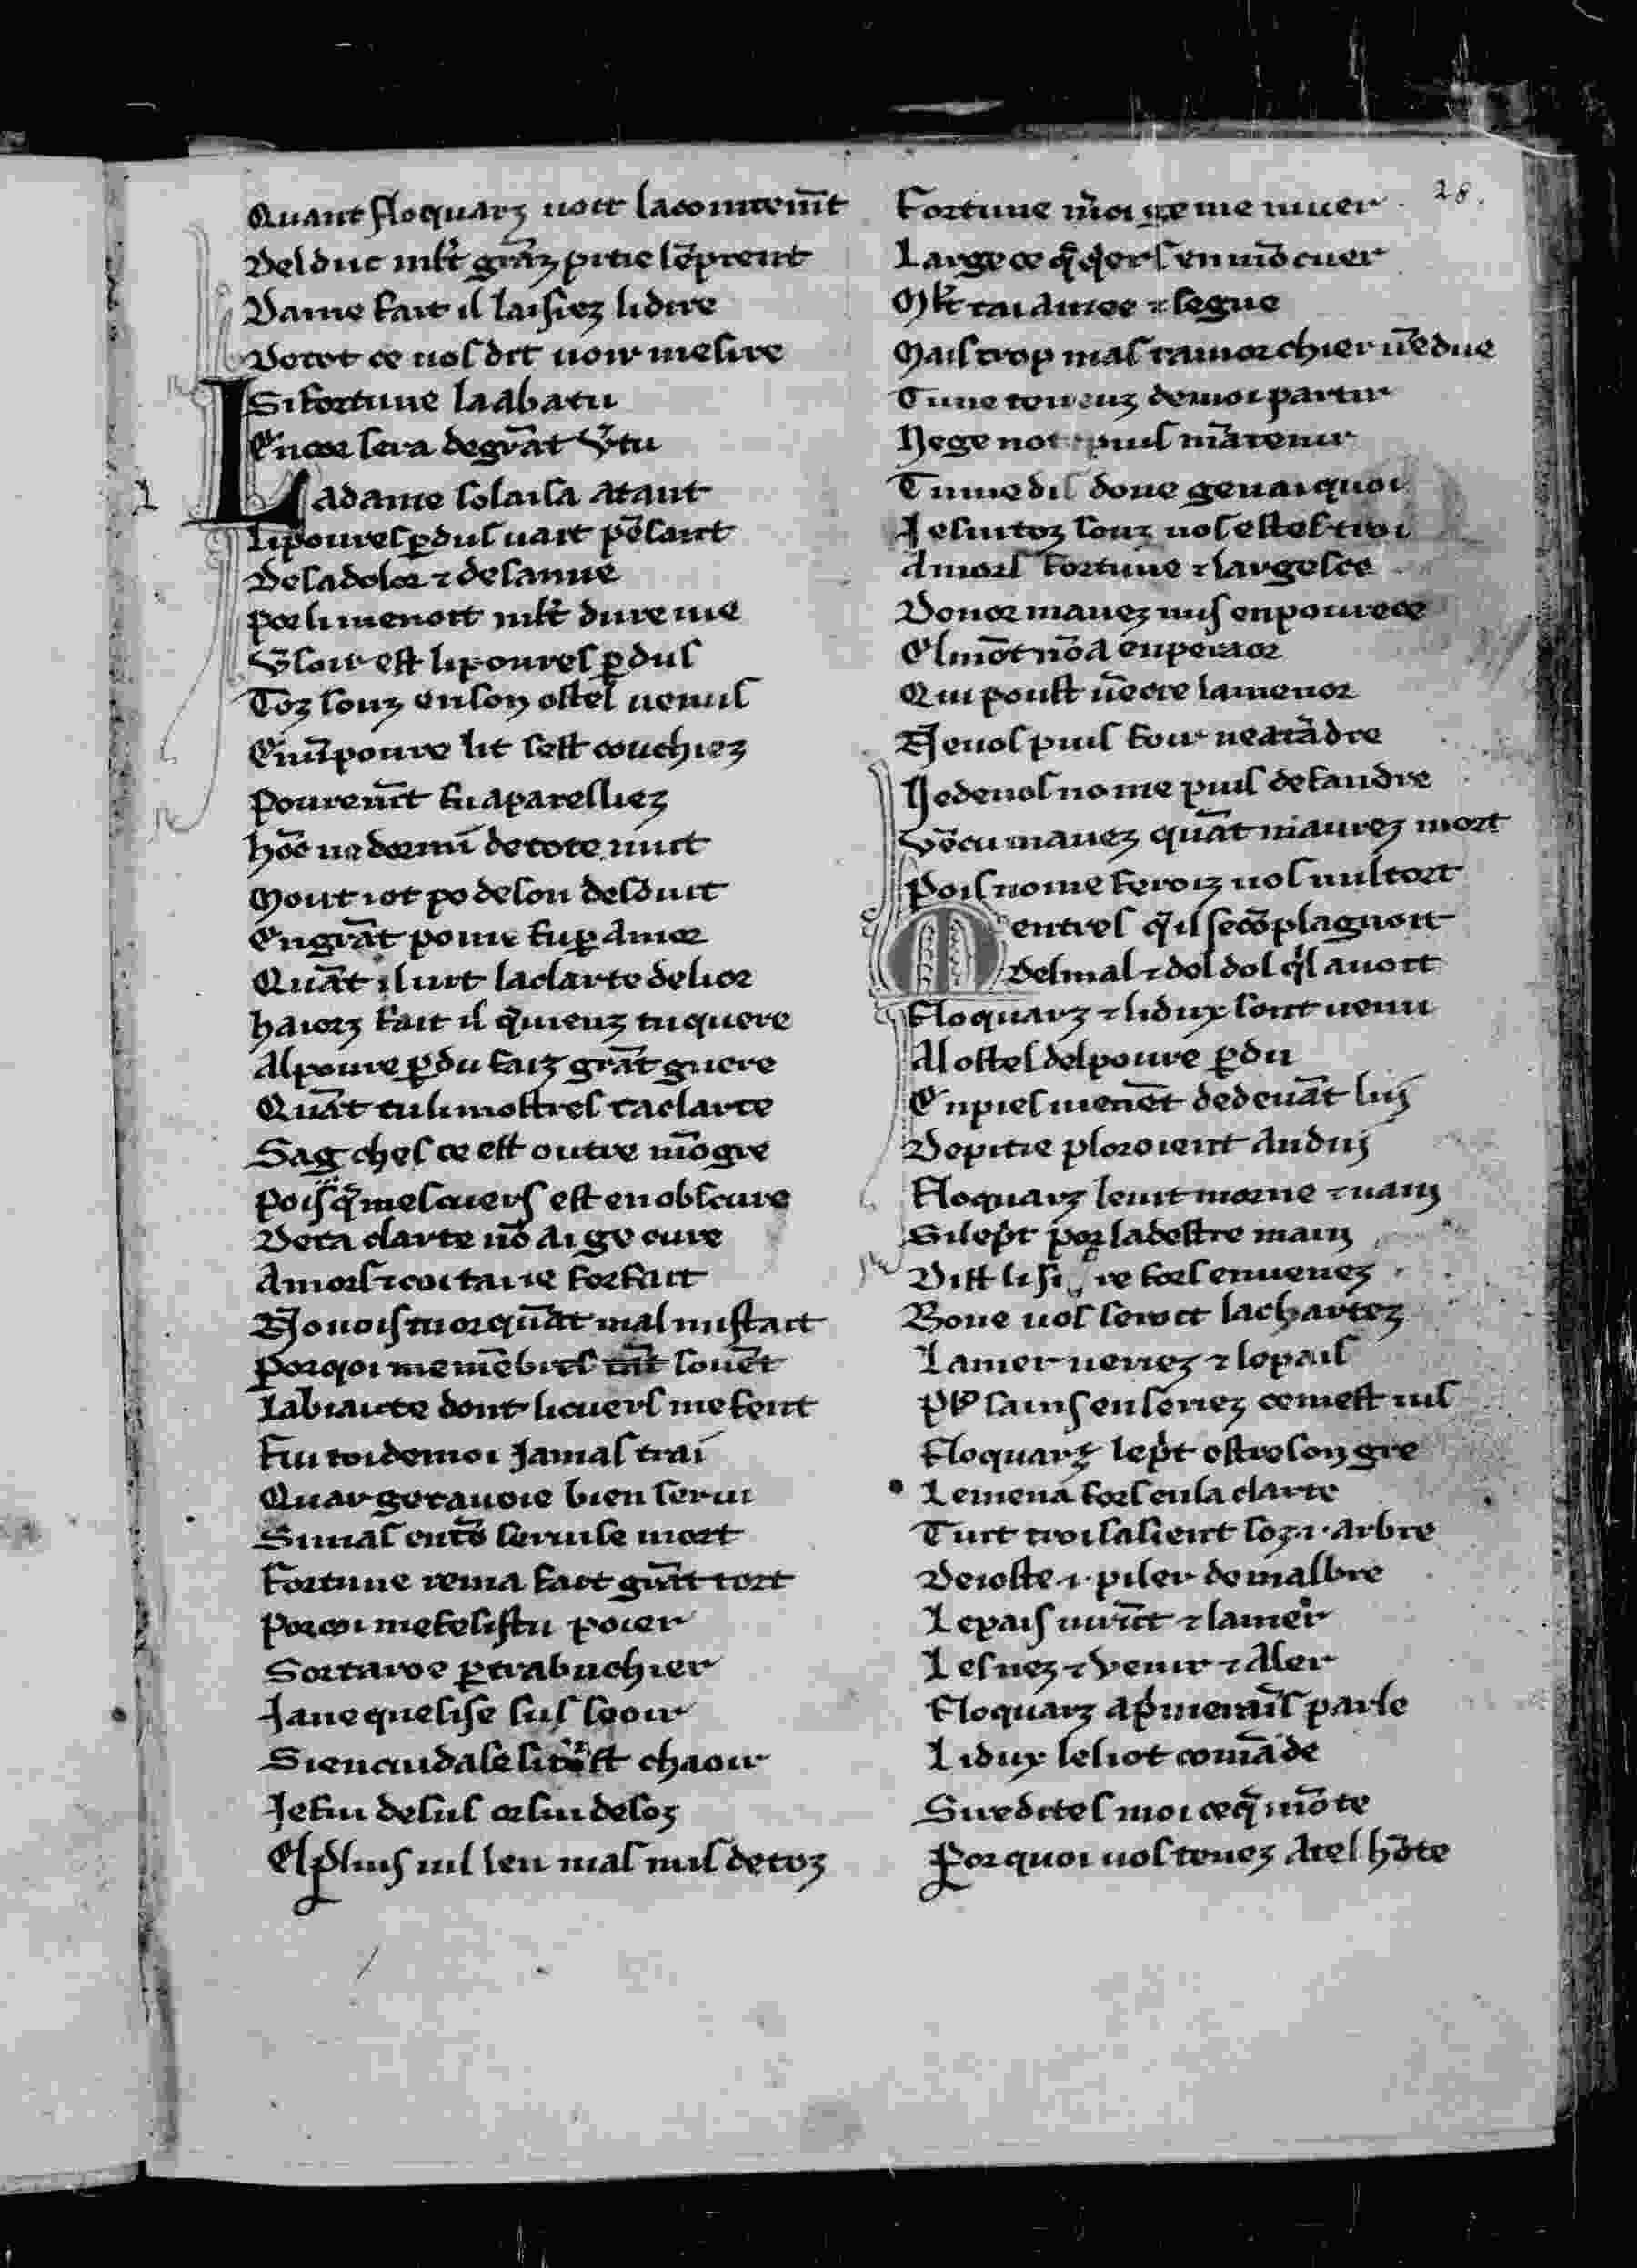 28.
Quant floquarz uoit lacontenm̅t
Del duc mlt̅ gra̅z pitie le̅prent
Dame fait il laisiez lidire
Detot ce uos dit uoir mesire
Si fortune laabatu
Encor sera degra̅t v̾tu
Ladame solaisa ataut
Lipoures ꝑdus uait pe̅sant
Desadolor ⁊ desanuie
Por li menoit mlt̅ dure uie
v̾ soir est lipoures ꝑdus
Toz souz enson ostel uenus
Enu̅ poure lit sest couchiez
Pourem̅t fu aparelliez
ho̅c ne dormi̅ detote nuit
Mout iot po deson desduit
Engra̅t poine fu ꝑ amor
Qua̅t il uit laclarte delior
haiorz fait il q̾ uienz tu quere
Alpoure ꝑdu faiz gra̅t guere
Qua̅t tu li mostres taclarte
Sag ches ce est outre mo̅gre
Pois q̾ mescuers est enobscure
Deta clarte no̅ ai ge cure
Amors ⁊ coi taiie forfait
Ne uois tu orqua̅t mal mistait
Porqoi meme̅bres ta̅t soue̅t
Labiaute dont licuers mefent
Fui toi demoi Jamas trai
Quar getauoie bien serui
Simas ento̅ seruise mort
Fortune rema fait gra̅t tort
Porcoi mefesistu poier
Sortaroe ꝑ trabuchier
Jane quesise sus seoir
Siencuidasse si tost chaoir
Jefui desus or sui desoz
El plus uil leu mas mis detoz
Fortune m̾ oi ge me muer
Largece q̾ q̾ers en mo̅ cuer
Mlt̅ tai amee ⁊ segue
Mais trop mas tamor chier ue̅due
Tune teueuz demoi partir
Nege not puis ma̅tenir
Tu me dis done ge uai quoi
Je sui toz souz uos estes troi
Amors fortune ⁊ largesce
Donor mauez mis enpourece
El mo̅t no̅ a enpereor
Qui poust ue̅cre lamenor
Ne uos puis foir ne ata̅dre
Nedeuos no me puis desfandre
ve̅cu mauez qua̅t maurez mort
Pois nome feroiz uos nul tort
Mentres q̾ il seco̅plagnoit
Delmal ⁊ dol dol q̾l auoit
Floquarz ⁊ lidux sont uenu
Al ostel delpoure ꝑdu
Enpies uiene̅t dedeua̅t lui
Depitie ploroient andui
Floquarz leuit morne ⁊ uain
Silep̾t por ladestre main
Dist li si re fors enuenez
Bone uos seroit lachartez
Lamer uerrez ⁊ lepais
Floquarz lep̾t ostreson gre
Lemena fors enla clarte
Tuit troi salient soz .i. arbre
Deioste .i. piler demalbre
Lepais uire̅t ⁊ lamer
Les nez ⁊ venir ⁊ aler
Floquarz ap̾merai̅s parle
Lidux leliot coma̅de
Sire dites moi ceq̾ mo̅te
Porquoi uos tenez atel ho̅te